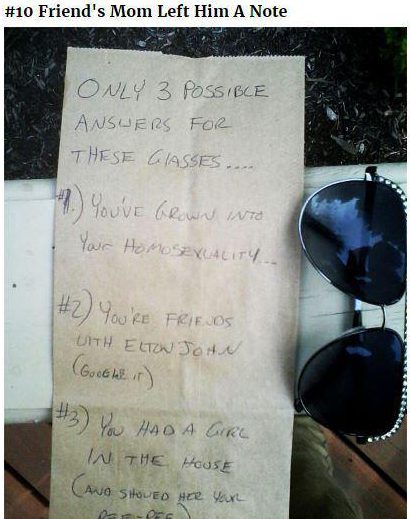 #10 Friend's Mom Left Him A Note
ONLY 3 POSSIBLE
ANSWERS FOR
THESE GLASSES....
#1.) YOU'VE GROWN INTO
YOUR HOMOSEXUALITY...
#2) YOU'RE FRIENDS
WITH ELTON JOHN
(GOOGLE IT)
#3) YOU HAD A GIRL
IN THE HOUSE
(AND SHOWED HER YOUR
PEE-PEE)